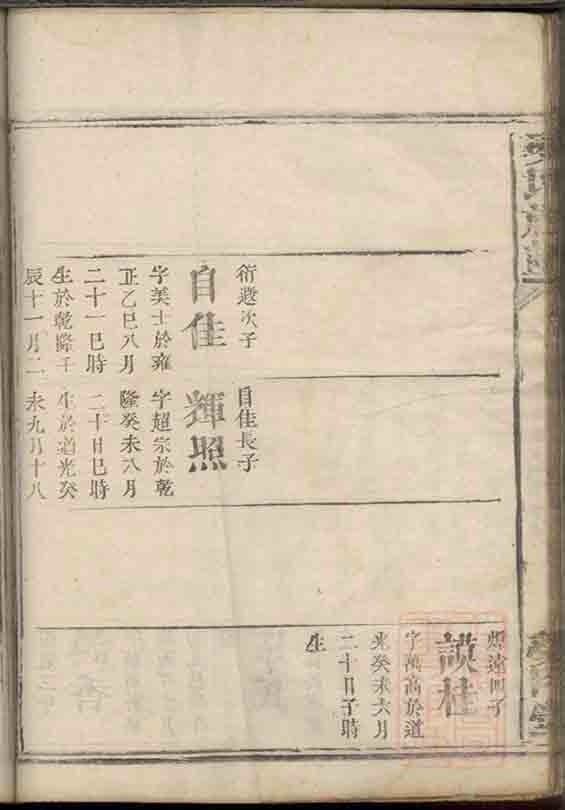 衍遐次子
自佳
字美士於雍
正乙巳八月
二十一巳時
生於乾隆壬
辰十一月二
自佳長子
輝照
字超宗於乾
隆癸未八月
二十日巳時
生於道光癸
未九月十八
四子
謨桂
字萬高於道
光癸未六月
二十日子時
生